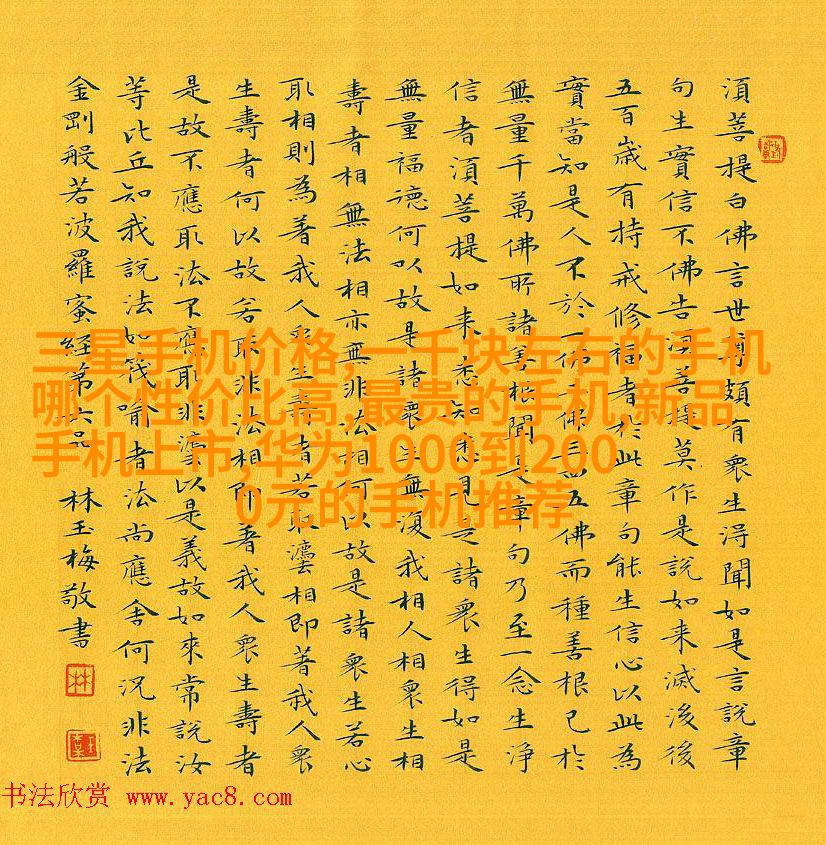 須菩提白佛言世尊頗有衆生得聞如是言說章
句生實信不佛告須菩提莫作是說如来滅後後
五百歲有持戒修福者於此章句能生信心以此為
實當知是人不於一佛二佛三四五佛而種善根已於
無量千萬佛所諸善根聞是章句乃至一念生淨
信者須菩提如来悉知悉見是諸衆生得如是
無量福德何以故是諸衆生無復我相人相衆生相
壽者相無法相亦無非法相何以故是諸衆生若心
取相則為著我人衆生壽者若取法相即著我人衆
生壽者何以故若取非法相即著我人衆生壽者
是故不應取法不應取非法以是義故如來常說汝
等比丘知我說法如筏喻者法尚應舍何況非法
金剛般若波羅蜜經第六品
林玉梅敬書
林
三星手机价格,一千块左右的手机
哪个性价比高,最贵的手机,新品
手机上市,华为1000到200
0元的手机推荐
书法欣赏 www.yac8.com